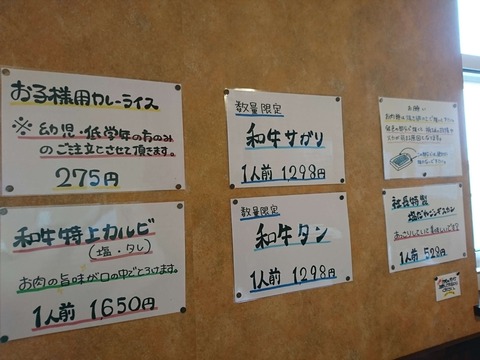 お子様用カレーライス
※幼児・低学年の方のみ
のご注文とさせて頂きます。
275円
和牛特上カルビ
(塩・タレ)
お肉の旨味が口の中でとろけます。
1人前 1650円
数量限定
和牛サガリ
1人前 1298円
数量限定
和牛タン
1人前 1298円
お願い
社長特製
塩だれジンギスカン
あっさりしていて美味しいです!
1人前 528円